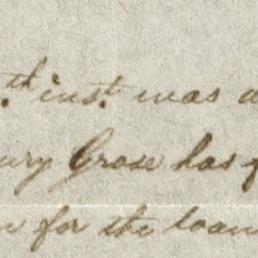 th inst. was a
ury Grose has f
for the loan